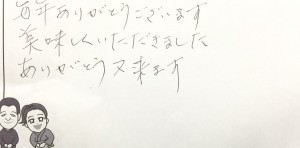 毎年ありがとうございます
美味しくいただきました
ありがとう又来ます